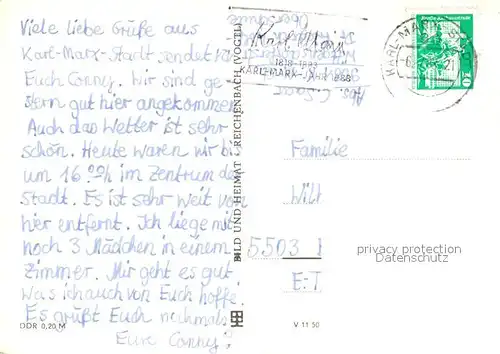 Viele liebe Grüße aus
Karl-Marx-Stadt sendet
Euch Conny. Wir sind ge-
stern gut hier angekommen
Auch das Wetter ist sehr
schön. Heute waren wir bis
um 16.00h im Zentrum der
Stadt. Es ist sehr weit von
hier entfernt. Ich liege mit
noch 3 Mädchen in einem
Zimmer. Mir geht es gut
Was ich auch von Euch hoffe.
Es grüßt Euch nochmals
Eure Conny.
DDR 0,20 M
BILD UND HEIMAT · REICHENBACH (VOGTL)
V 11 50
Karl Marx
1818-1883
KARL-MARX-JAHR 1983
Oberschule
Abs. C.
KARL-MARX-STADT
10
Familie
Wilt
5503
E.-T.
privacy protection
Datenschutz